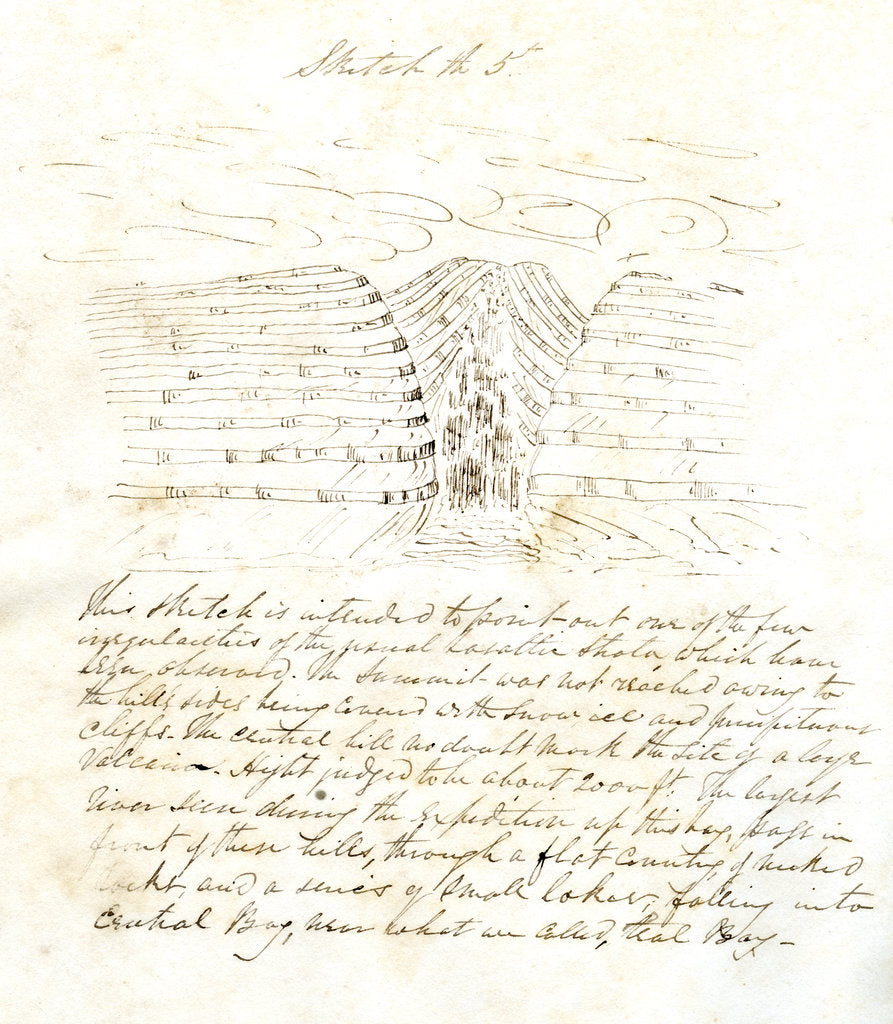 Sketch th 5th
This Sketch is intended to point out one of the few
irregularities of the usual basaltic Strata which have
been observed. The Summit was not reached owing to
the hill's sides being covered with Snow ice and precipituous
cliffs. The central hill no doubt mark the Site of a large
Volcano. Hight judged to be about 2000 ft. The largest
river seen during the Expedition up this bay, pass in
front of these hills, through a flat Country, of naked
rocks, and a series of small lakes, falling into
Central Bay, near what we called, Seal Bay -